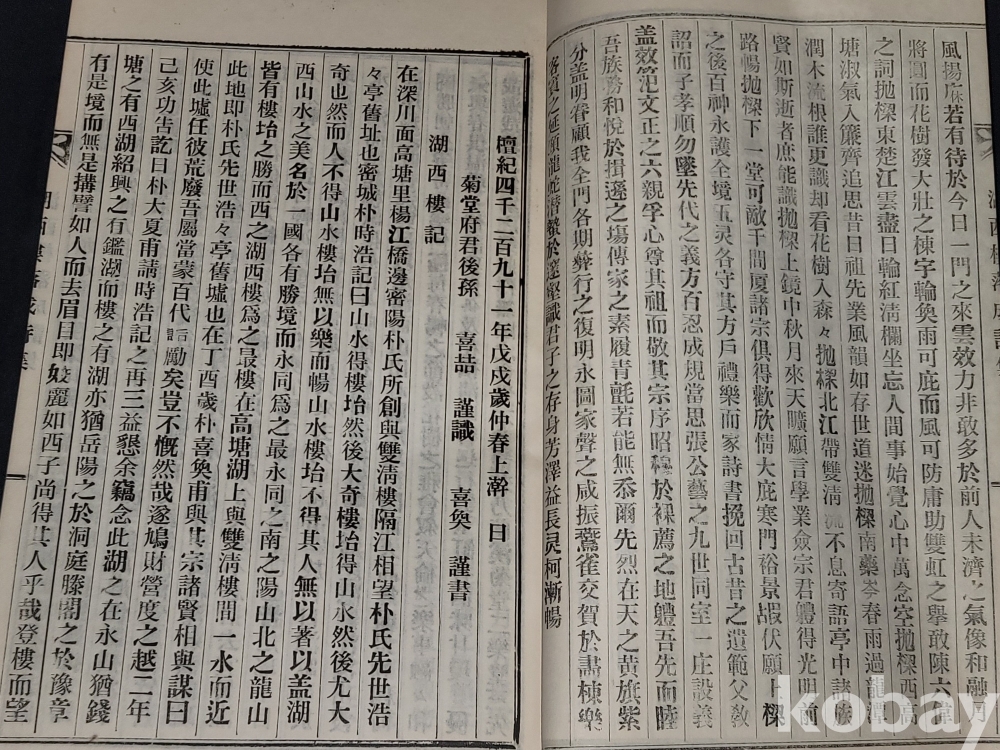 風揚庥若有待於今日一門之來雲效力非敢多於前人未濟之氣像和融月
將圓而花樹發大壯之棟宇輪奐雨可庇而風可防庸助雙虹之擧敢陳六偉
之詞拋樑東楚江雲盡日輪紅淸欄坐忘人間事始覺心中萬念空拋樑西高
塘淑氣入簾齊追思昔日祖先業風韻如存世道迷拋樑南藥岑春雨過龍潭
潤木流根誰更識却看花樹入森々拋樑北江帶雙淸流不息寄語亭中諸族
賢如斯逝者庶能識拋樑上鏡中秋月來天曠願言學業僉宗君軆得光明前
路暢拋樑下一堂可敵千間廈諸宗俱得歡欣情大庇寒門裕景嘏伏願上樑
之後百神永護全境五灵各守其方戶禮樂而家詩書挽回古昔之遺範父敎
詔而子孝順勿墜先代之義方百忍成規當思張公藝之九世同室一庄設義
盖效笵文正之六親孚心尊其祖而敬其宗序昭穆於祼薦之地軆吾先而睦
吾族務和悅於揖遜之塲傳家之素履靑氈若能無忝爾先烈在天之黄旗紫
分盖明眷顧我全門各期彜行之復明永圖家聲之咸振鷰雀交賀於畵棟樂
之延順龍蛇潛蟄於邃壑識君子之存身芳澤益長灵柯漸暢
檀紀四千二百九十一年戊戌歲仲春上澣　日
菊堂府君後孫　喜喆　謹識　喜奐　謹書
湖西樓記
在深川面高塘里楊江橋邊密陽朴氏所創與雙淸樓隔江相望朴氏先世浩
々亭舊址也密城朴時浩記曰山水得樓坮然後大奇樓坮得山水然後尤大
奇也然而人不得山水樓坮無以樂而暢山水樓坮不得其人無以著以盖湖
西山水之美名於一國各有勝境而永同爲之最永同之南之陽山北之龍山
皆有樓坮之勝而西之湖西樓爲之最樓在高塘湖上與雙淸樓間一水而近
此地即朴氏先世浩々亭舊墟也在丁酉歲朴喜奐甫與其宗諸賢相與謀曰
使此墟任彼荒廢吾屬當蒙百代言勵矣豈不慨然哉遂鳩財營度之越二年
己亥功告訖曰朴大夏甫請時浩記之再三益懇余竊念此湖之在永山猶錢
塘之有西湖紹興之有鑑湖而樓之有湖亦猶岳陽之於洞庭滕閣之於豫章
有是境而無是搆譬如人而去眉目即姣麗如西子尚得其人乎哉登樓而望
kobay